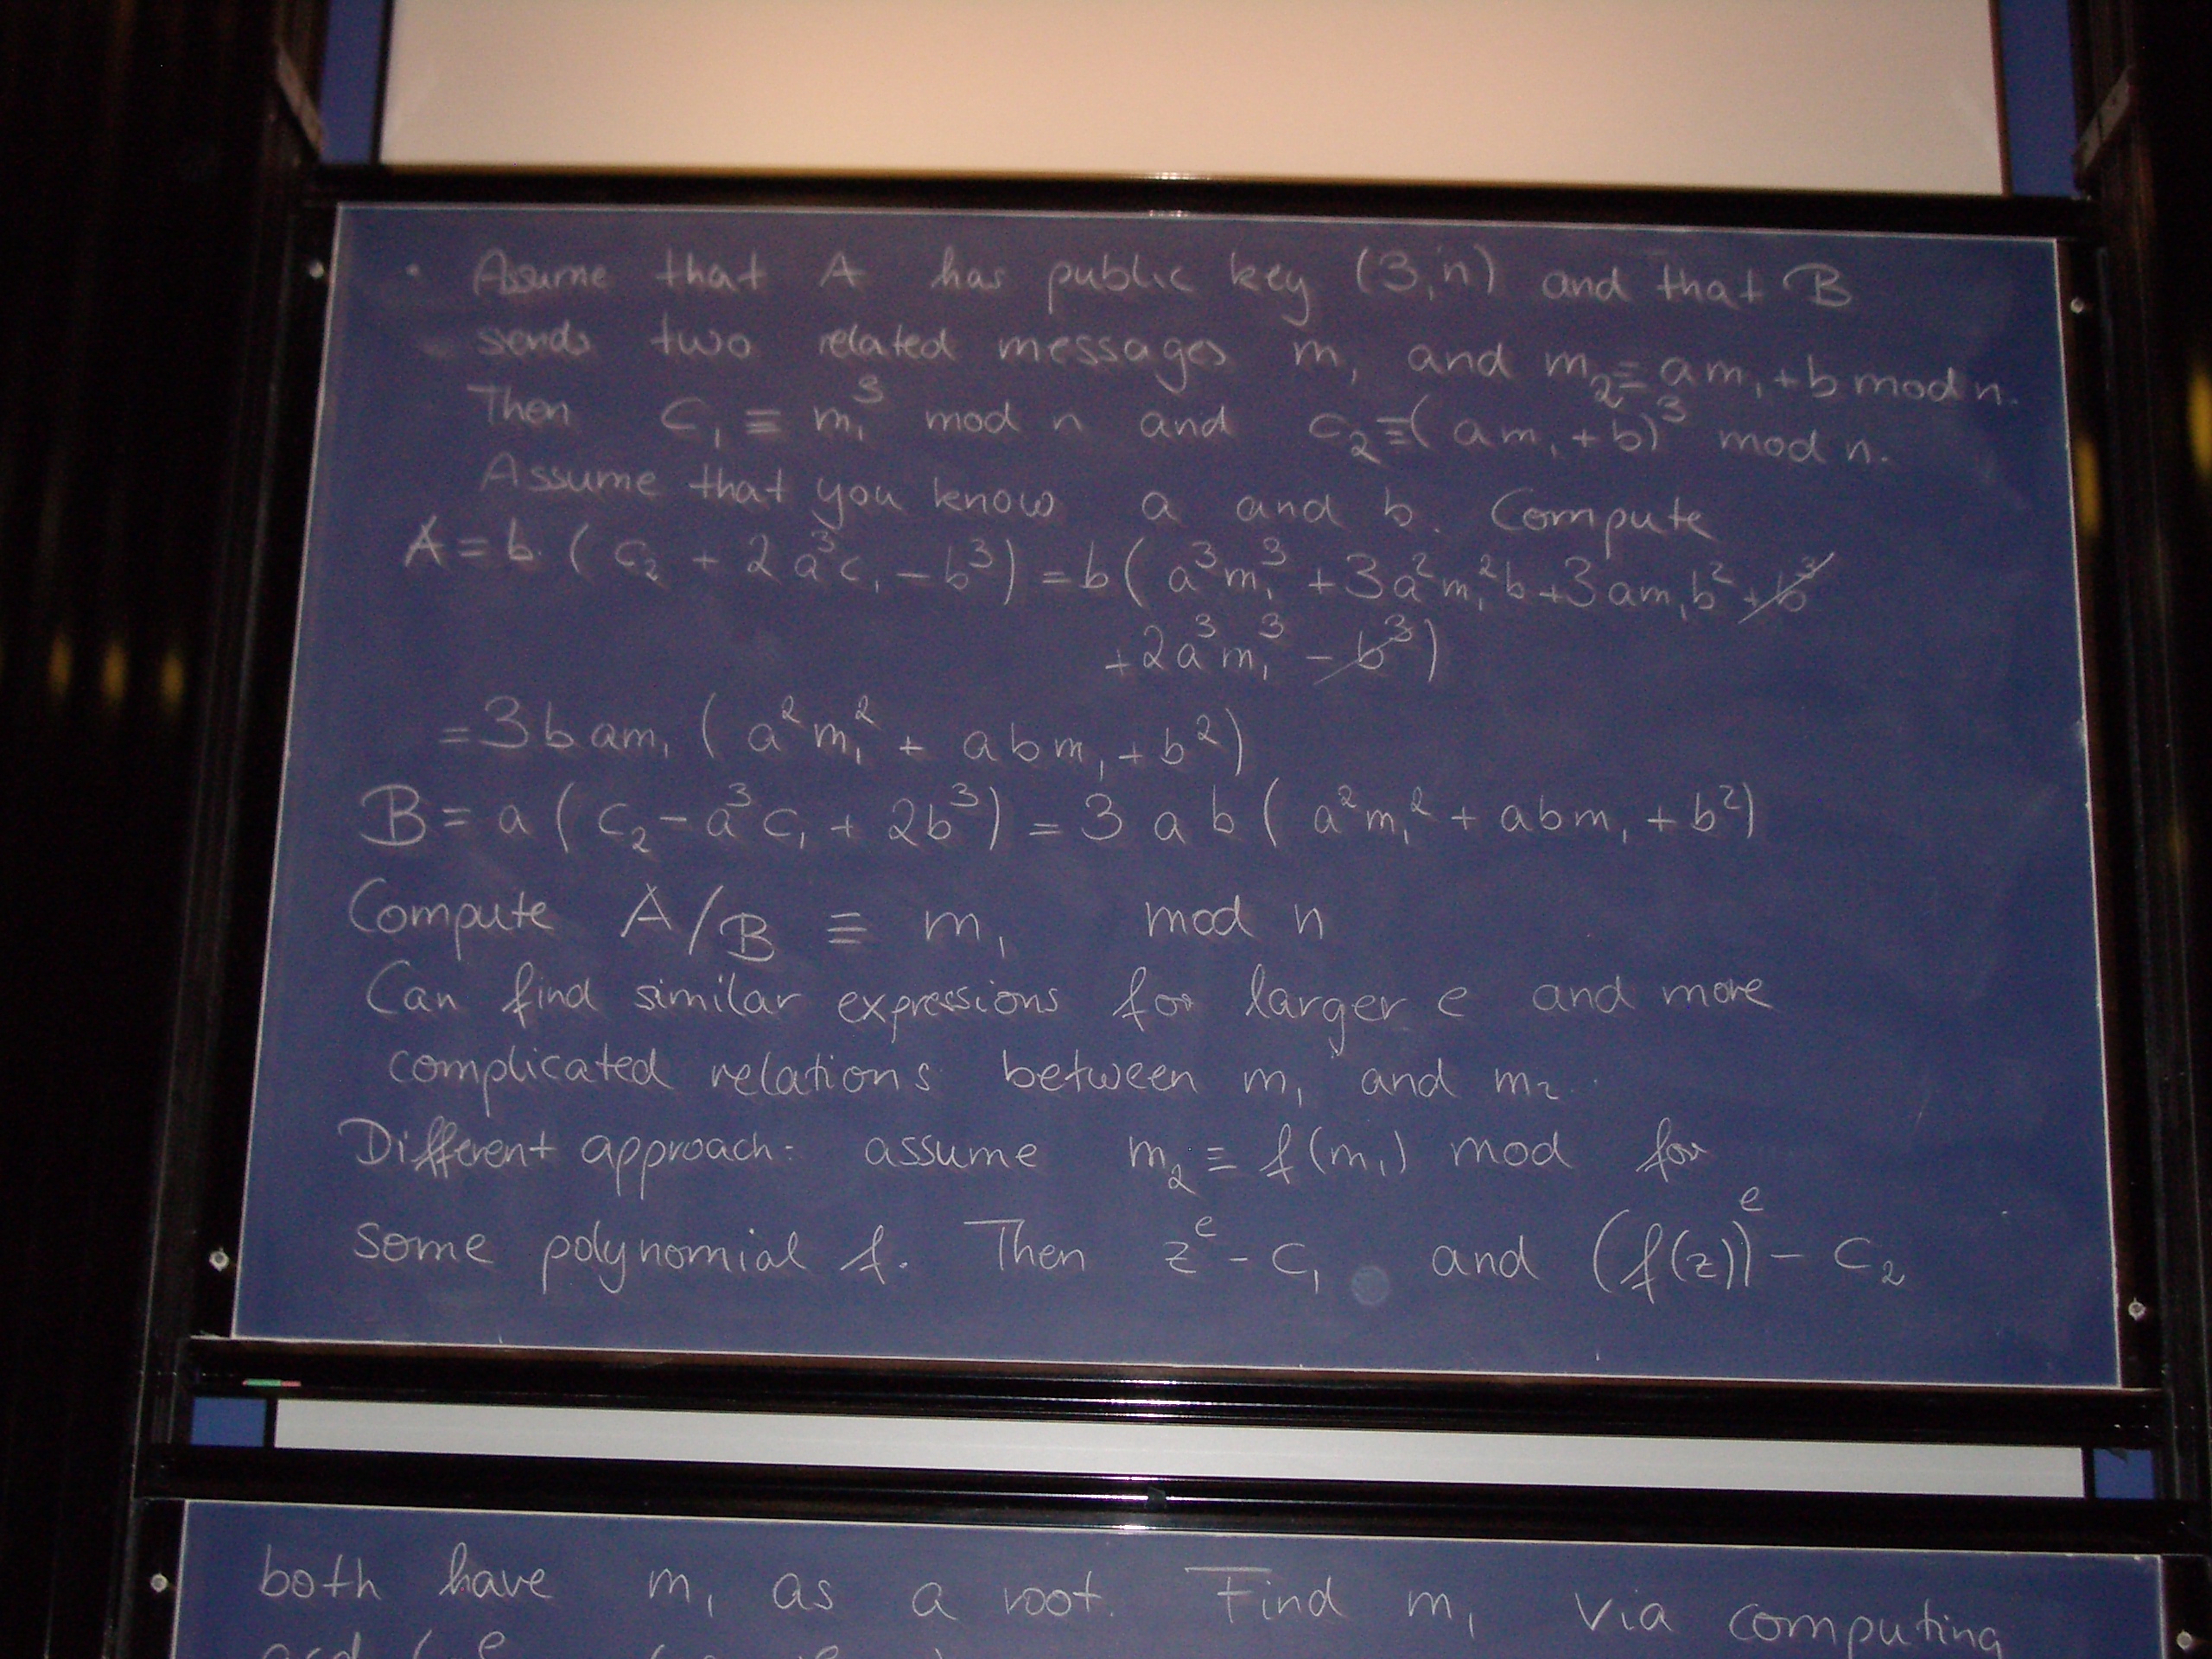 • Assume that A has public key (3,n) and that B
sends two related messages m₁ and m₂≡am₁+b mod n.
Then c₁ ≡ m₁³ mod n and c₂≡(am₁+b)³ mod n.
Assume that you know a and b. Compute
A=b·(c₂+2a³c₁-b³)=b(a³m₁³+3a²m₁²b+3am₁b²+b³
+2a³m₁³-b³)
=3bam₁(a²m₁²+abm₁+b²)
B=a(c₂-a³c₁+2b³)=3ab(a²m₁²+abm₁+b²)
Compute A/B ≡ m₁ mod n
Can find similar expressions for larger e and more
complicated relations between m₁ and m₂.
Different approach: assume m₂≡f(m₁) mod for
some polynomial f. Then zᵉ-c₁ and (f(z))ᵉ-c₂
both have m₁ as a root. Find m₁ via computing